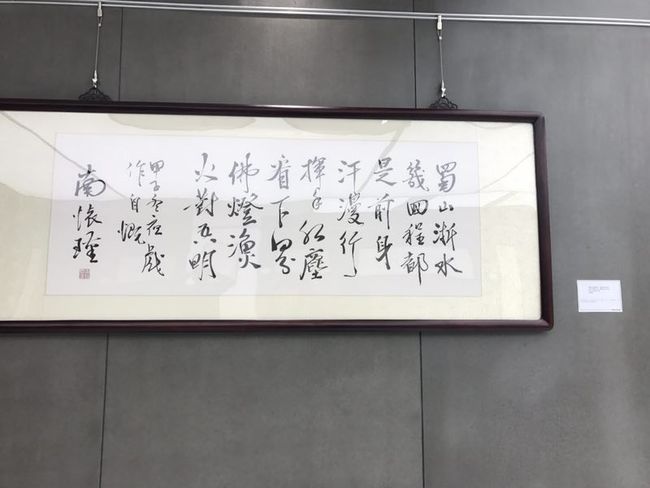 蜀山浙水
幾回程都
是前身
汗漫行
揮手紅塵
看下界
佛燈漁
火對天明
甲子冬夜戲
作自慨
南懷瑾